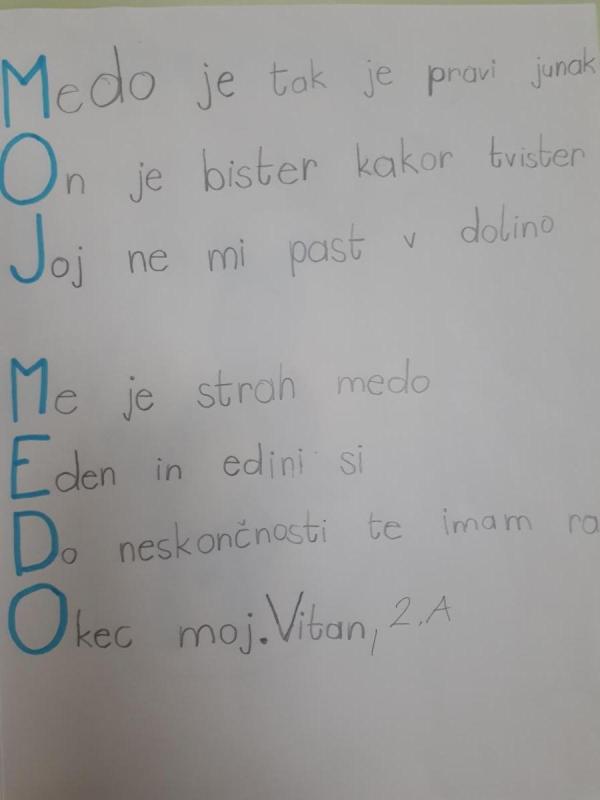 Medo je tak je pravi junak
On je bister kakor tvister
Joj ne mi past v dolino
Me je strah medo
Eden in edini si
Do neskončnosti te imam ra
Okec moj. Vitan, 2. A